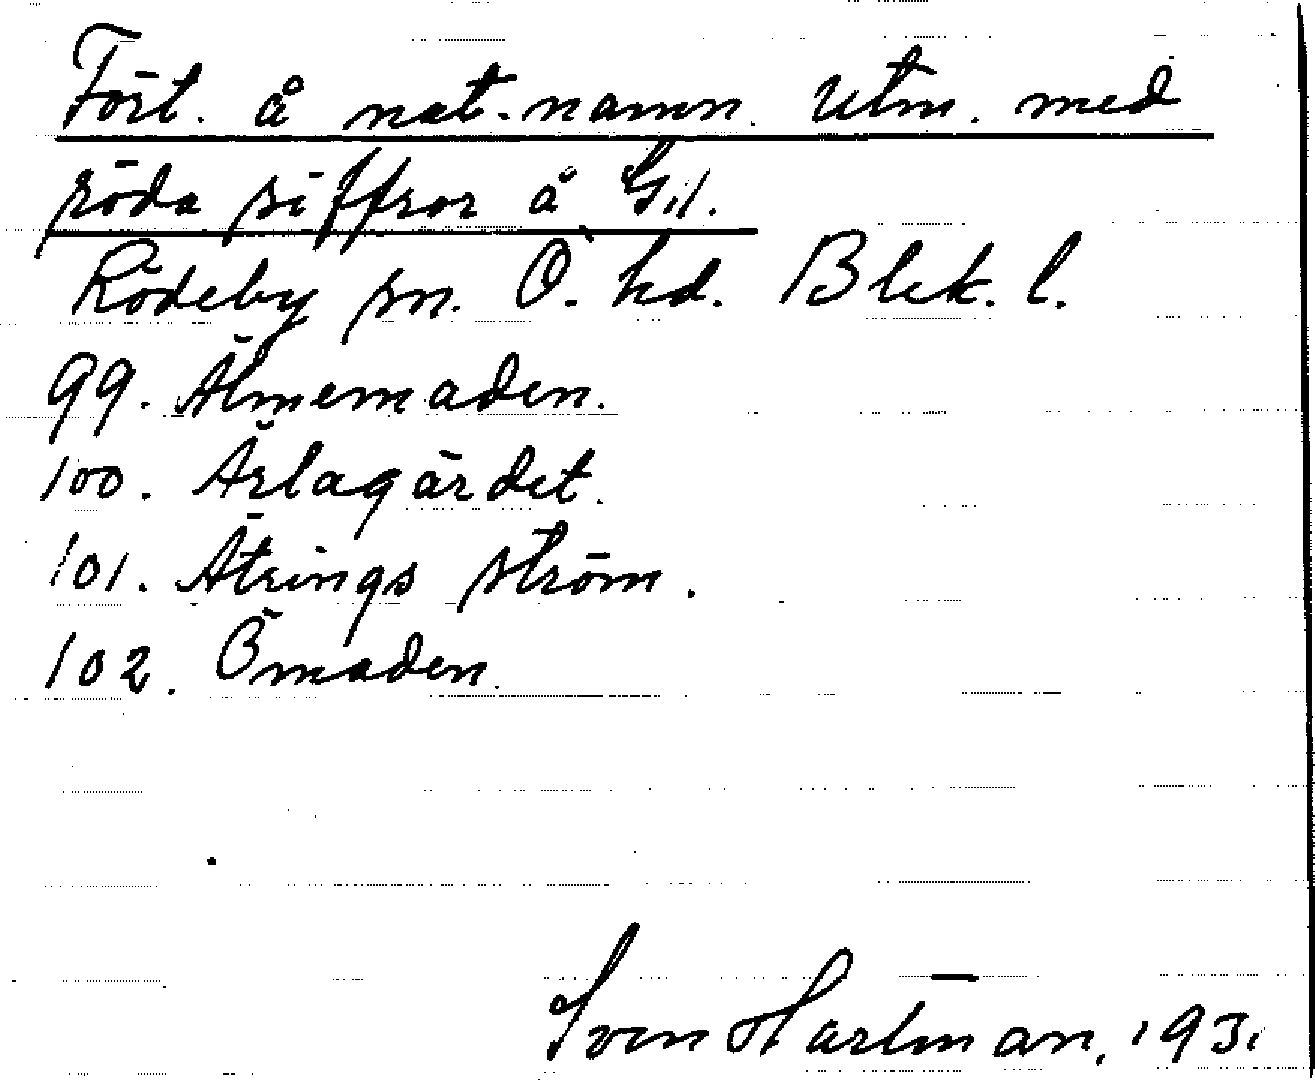 Fört. å nat.-namn. utm. med
röda siffror å G.1.
Rödeby sn. Ö. hd. Blek. l.
99. Älmemaden.
100. Ärlagärdet.
101. Ätrings ström.
102. Ömaden.
Sven Hartman, 1931